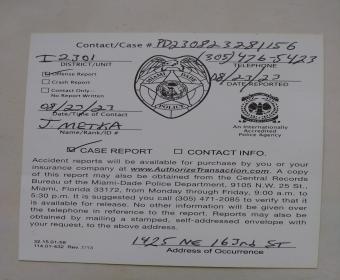 Contact/Case #. PD230823281156
I 2301
(305) 476-5423
DISTRICT/UNIT
TELEPHONE
Offense Report
08/23/23
Crash Report
# DATE REPORTED
Contact Only—
No Report Written
MIAMI-DADE
POLICE
08/23/23
Date/Time of Contact
J. METKA
Name/Rank/ID #
An Internationally
Accredited
Police Agency
CASE REPORT
CONTACT INFO.
Accident reports will be available for purchase by you or your
insurance company at www.AuthorizeTransaction.com. A copy
of this report may also be obtained from the Central Records
Bureau of the Miami-Dade Police Department, 9105 N.W. 25 St.,
Miami, Florida 33172, from Monday through Friday, 9:00 a.m. to
5:30 p.m. It is suggested you call (305) 471-2085 to verify that it
is available for release. No other information will be given over
the telephone in reference to the report. Reports may also be
obtained by mailing a stamped, self-addressed envelope with
your request, to the above address.
1425 NE 163rd ST
Address of Occurrence
32.15.01-58
114.01-632 Rev. 7/13